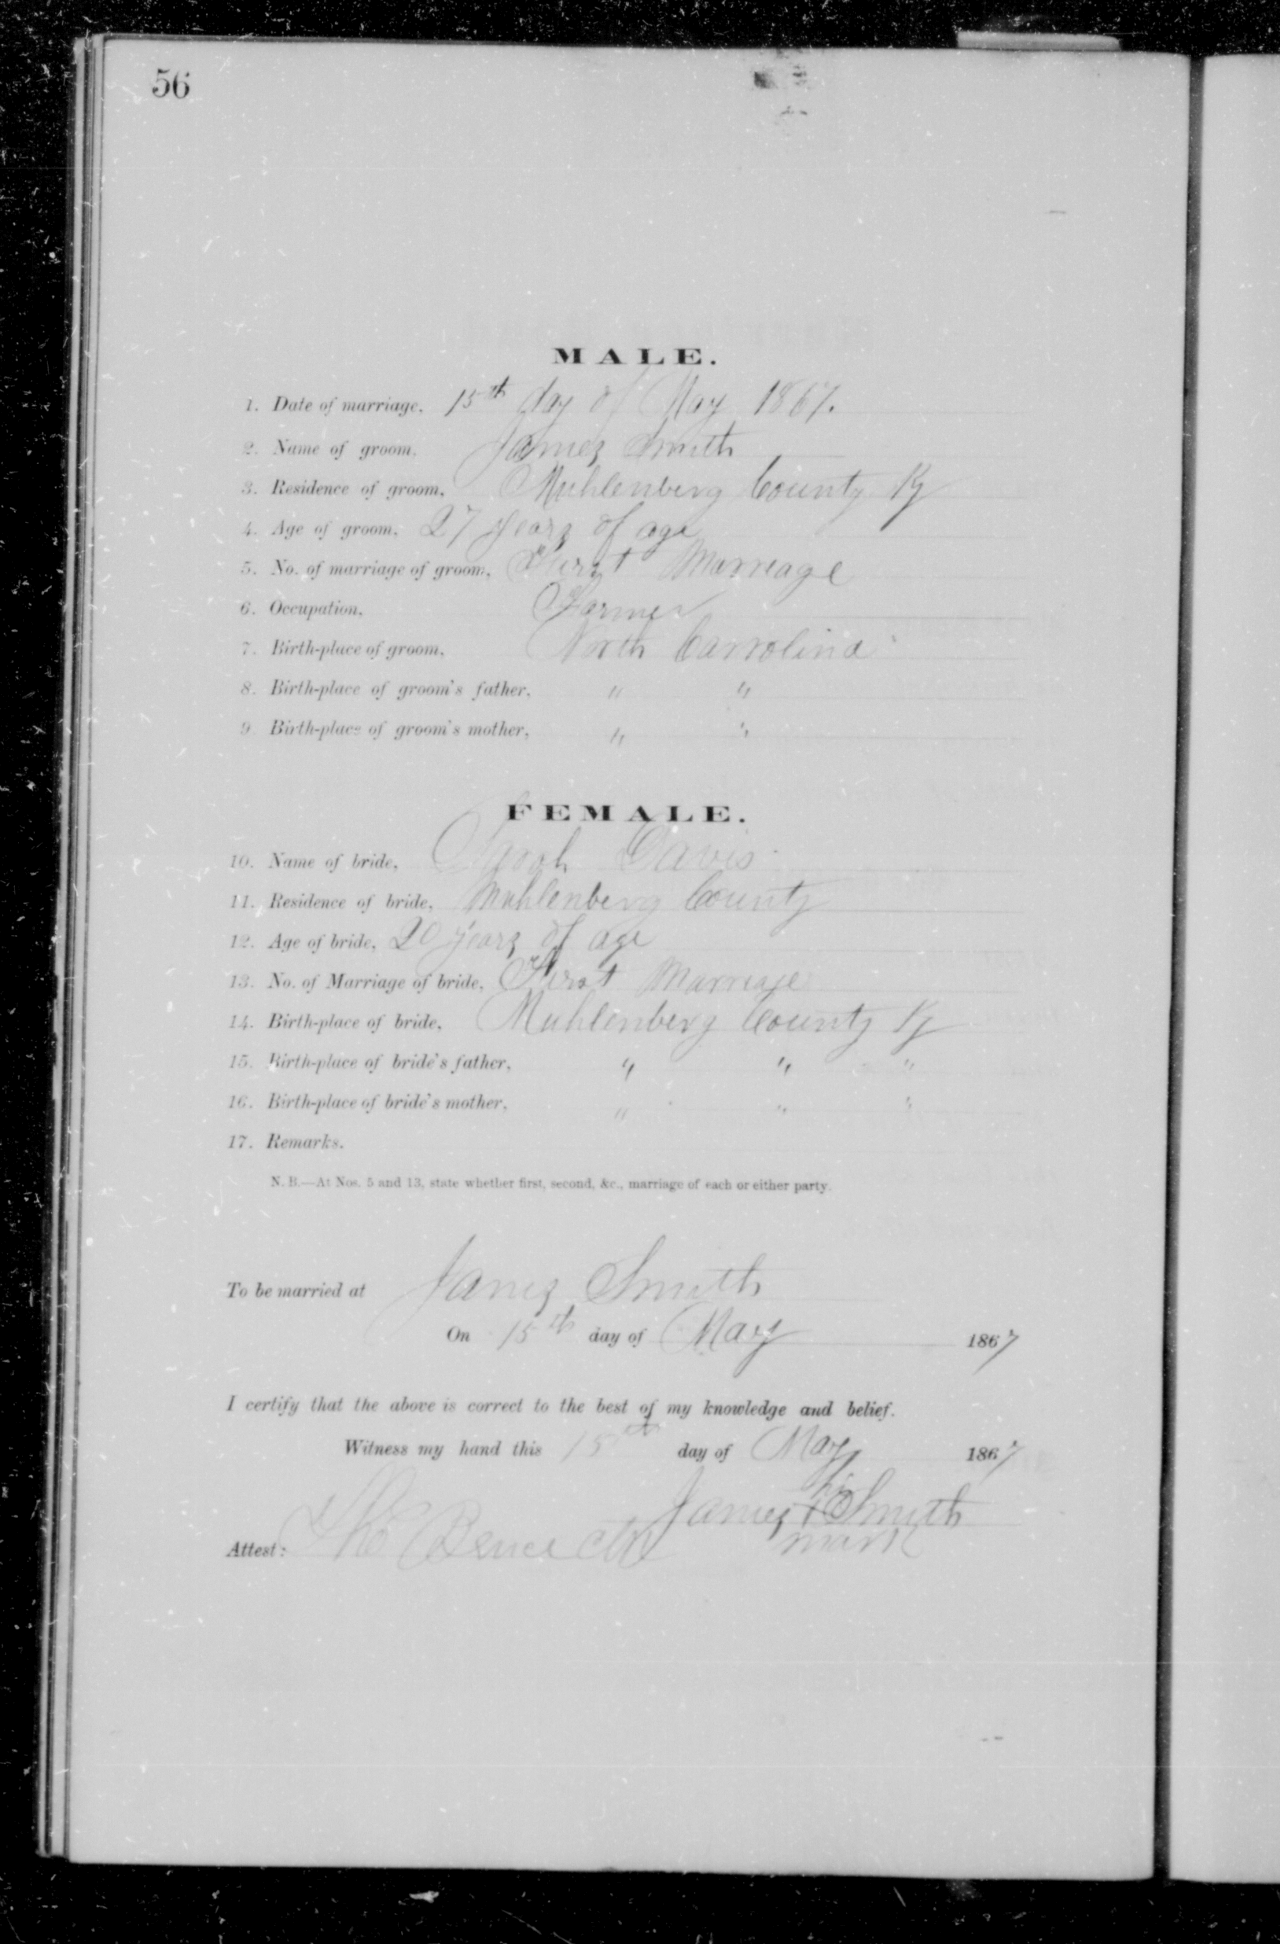 56
MALE.
1. Date of marriage, 15th day of May 1867.
2. Name of groom, James Smith
3. Residence of groom, Muhlenberg County Ky
4. Age of groom, 27 years of age
5. No. of marriage of groom, First Marriage
6. Occupation, Farmer
7. Birth-place of groom, North Carrolina
8. Birth-place of groom's father, " "
9. Birth-place of groom's mother, " "
FEMALE.
10. Name of bride, Sarah Davis
11. Residence of bride, Muhlenberg County
12. Age of bride, 20 years of age
13. No. of Marriage of bride, First Marriage
14. Birth-place of bride, Muhlenberg County Ky
15. Birth-place of bride's father, " " "
16. Birth-place of bride's mother, " " "
17. Remarks.
N. B.—At Nos. 5 and 13, state whether first, second, &c., marriage of each or either party.
To be married at James Smith
On 15th day of May 1867
I certify that the above is correct to the best of my knowledge and belief.
Witness my hand this 15th day of May 1867
his
James + Smith
mark
Attest: Bruce